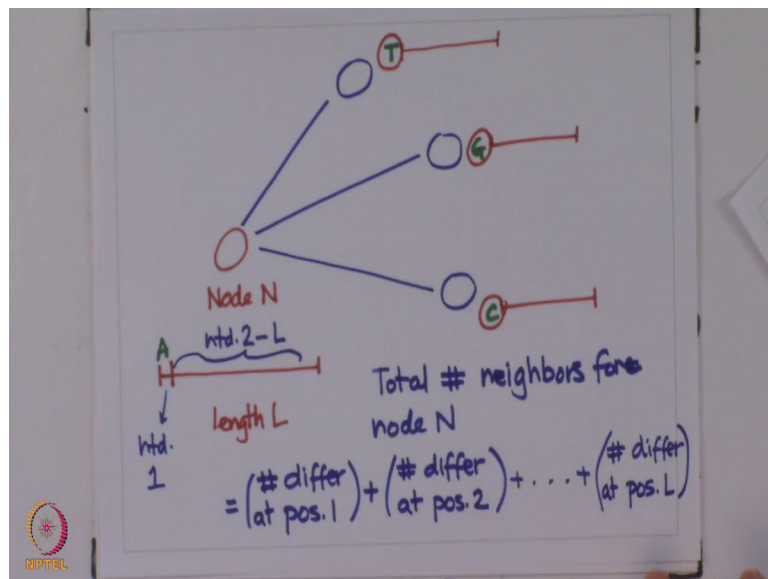 T
G
Node N
C
A
ntd. 2-L
length L
ntd.
1
Total # neighbors for
node N
= (# differ at pos. 1) + (# differ at pos. 2) + . . . + (# differ at pos. L)
NPTEL